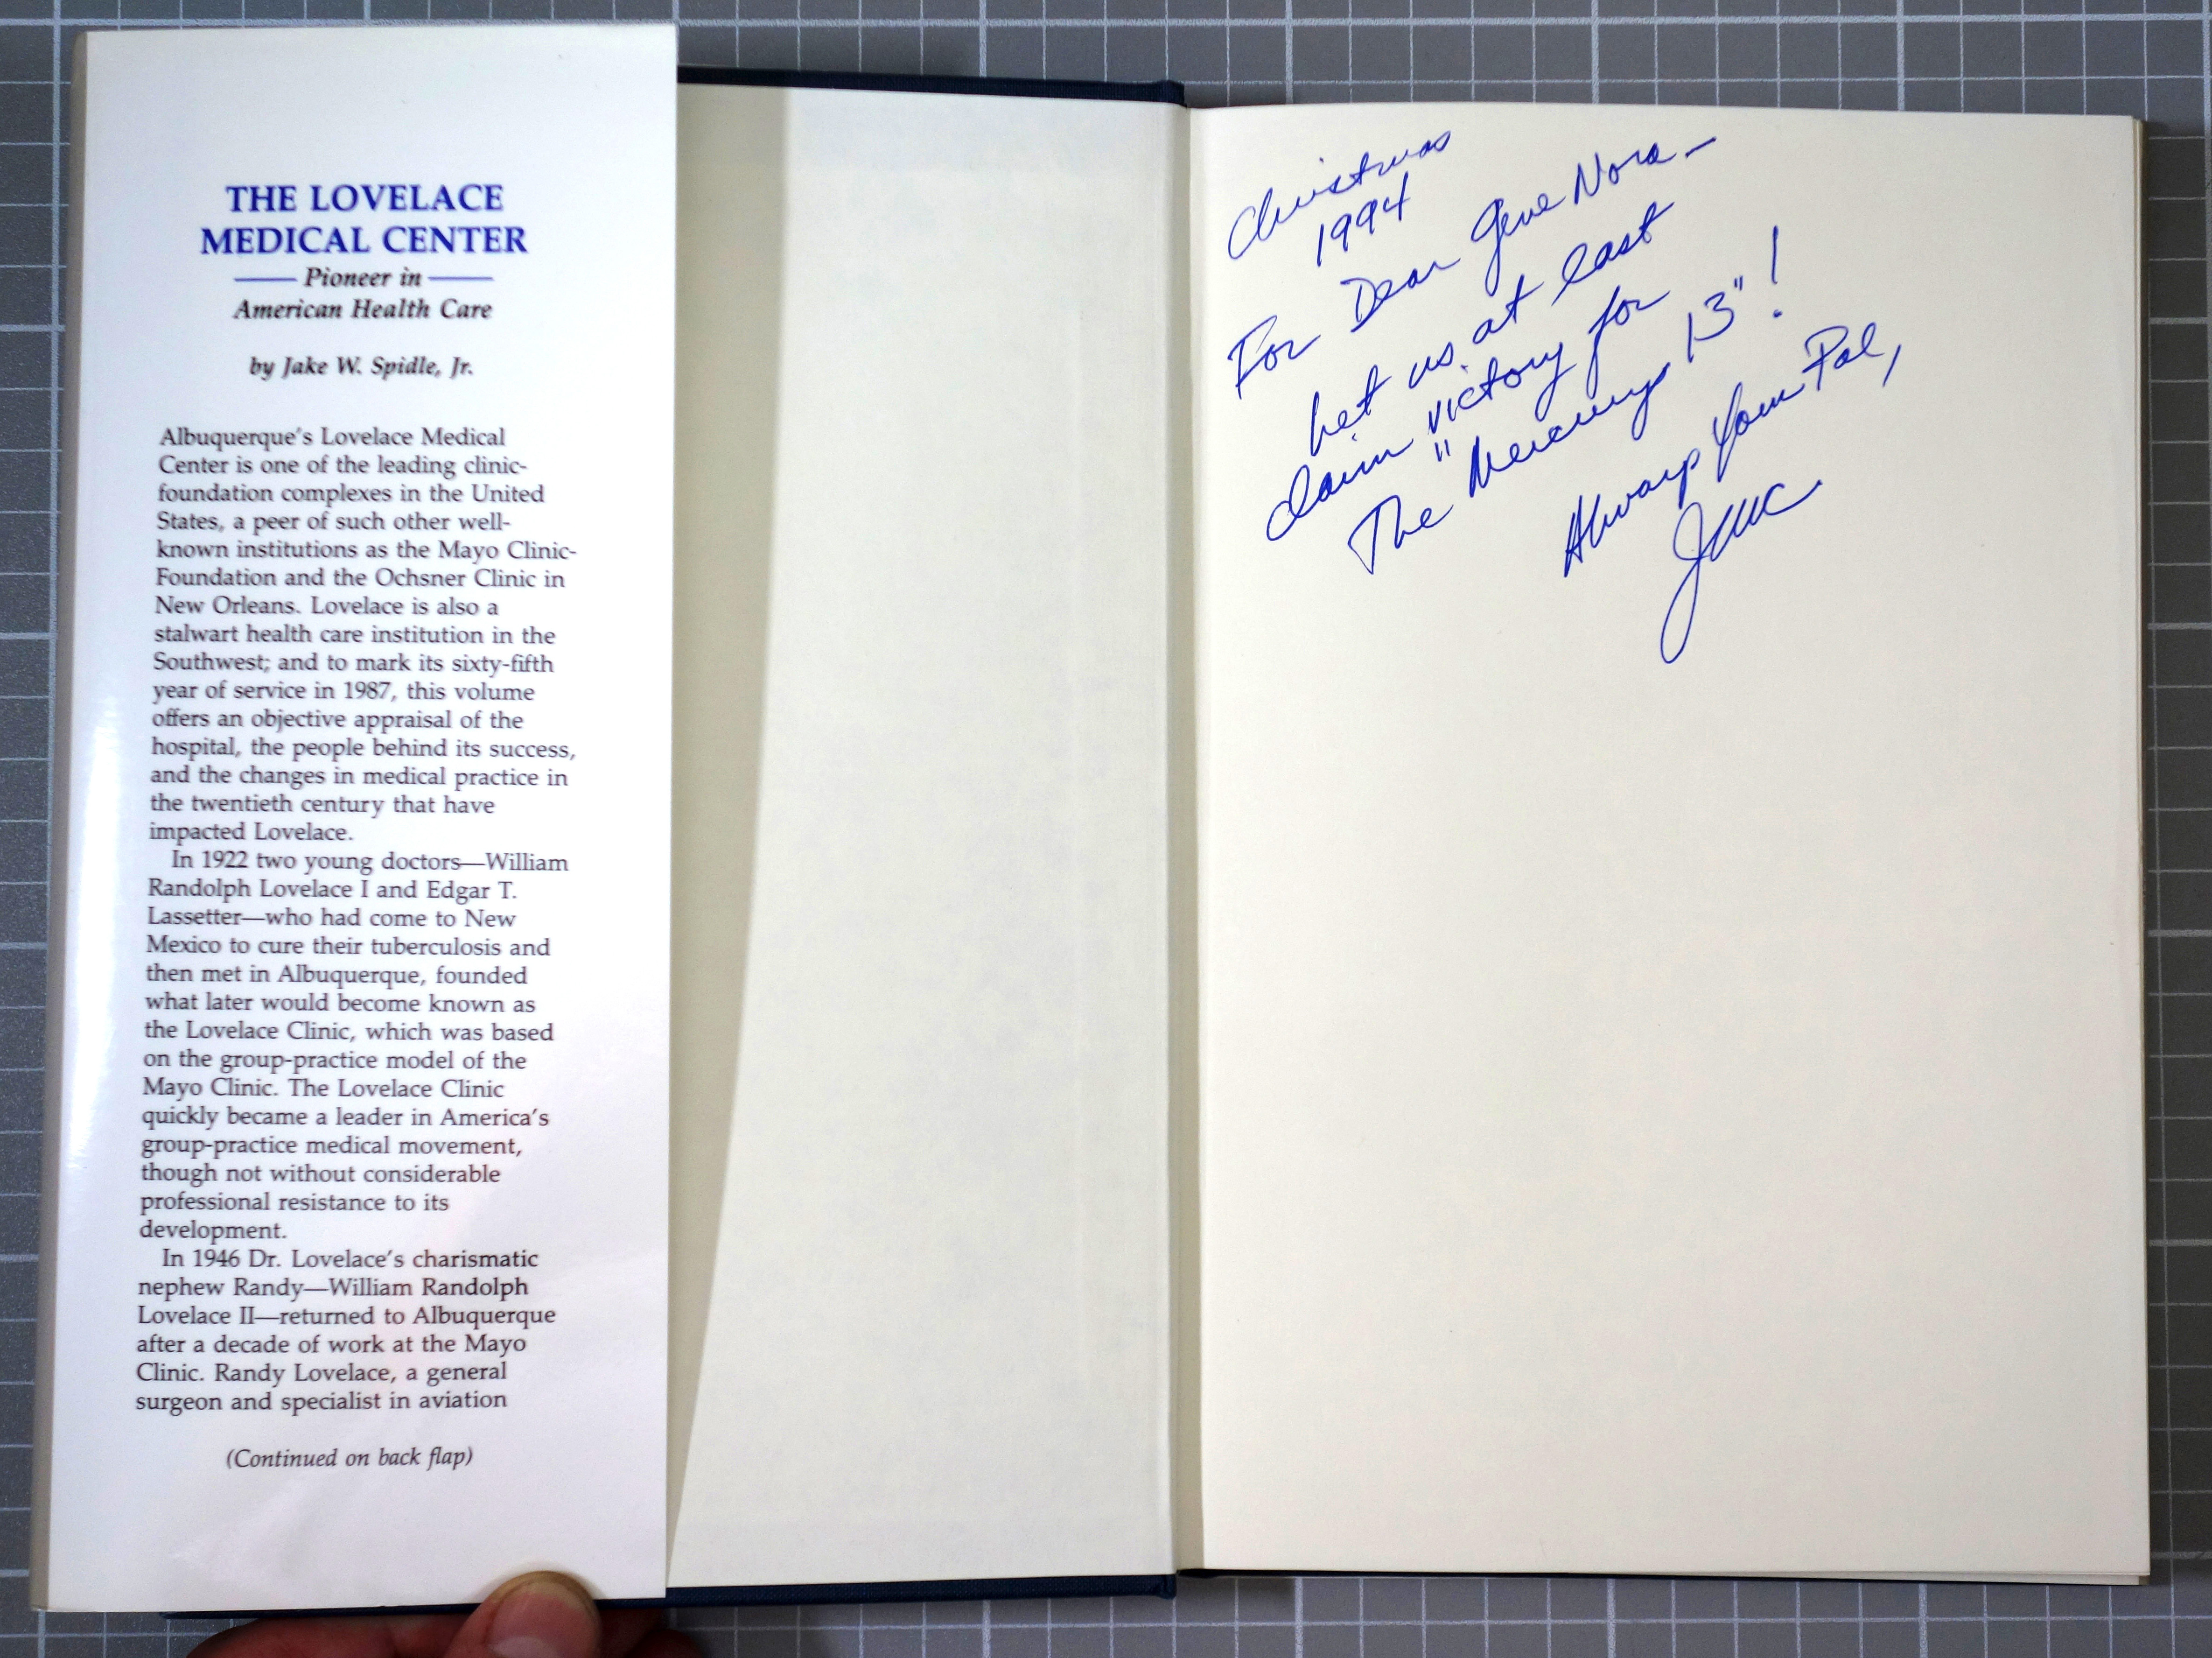 THE LOVELACE
MEDICAL CENTER
Pioneer in
American Health Care
by Jake W. Spidle, Jr.
Albuquerque's Lovelace Medical
Center is one of the leading clinic-
foundation complexes in the United
States, a peer of such other well-
known institutions as the Mayo Clinic-
Foundation and the Ochsner Clinic in
New Orleans. Lovelace is also a
stalwart health care institution in the
Southwest; and to mark its sixty-fifth
year of service in 1987, this volume
offers an objective appraisal of the
hospital, the people behind its success,
and the changes in medical practice in
the twentieth century that have
impacted Lovelace.
In 1922 two young doctors—William
Randolph Lovelace I and Edgar T.
Lassetter—who had come to New
Mexico to cure their tuberculosis and
then met in Albuquerque, founded
what later would become known as
the Lovelace Clinic, which was based
on the group-practice model of the
Mayo Clinic. The Lovelace Clinic
quickly became a leader in America's
group-practice medical movement,
though not without considerable
professional resistance to its
development.
In 1946 Dr. Lovelace's charismatic
nephew Randy—William Randolph
Lovelace II—returned to Albuquerque
after a decade of work at the Mayo
Clinic. Randy Lovelace, a general
surgeon and specialist in aviation
(Continued on back flap)
Christmas
1994
For Dear Gene Nora—
Let us at last
claim victory for
The "Mercury 13"!
Always Your Pal,